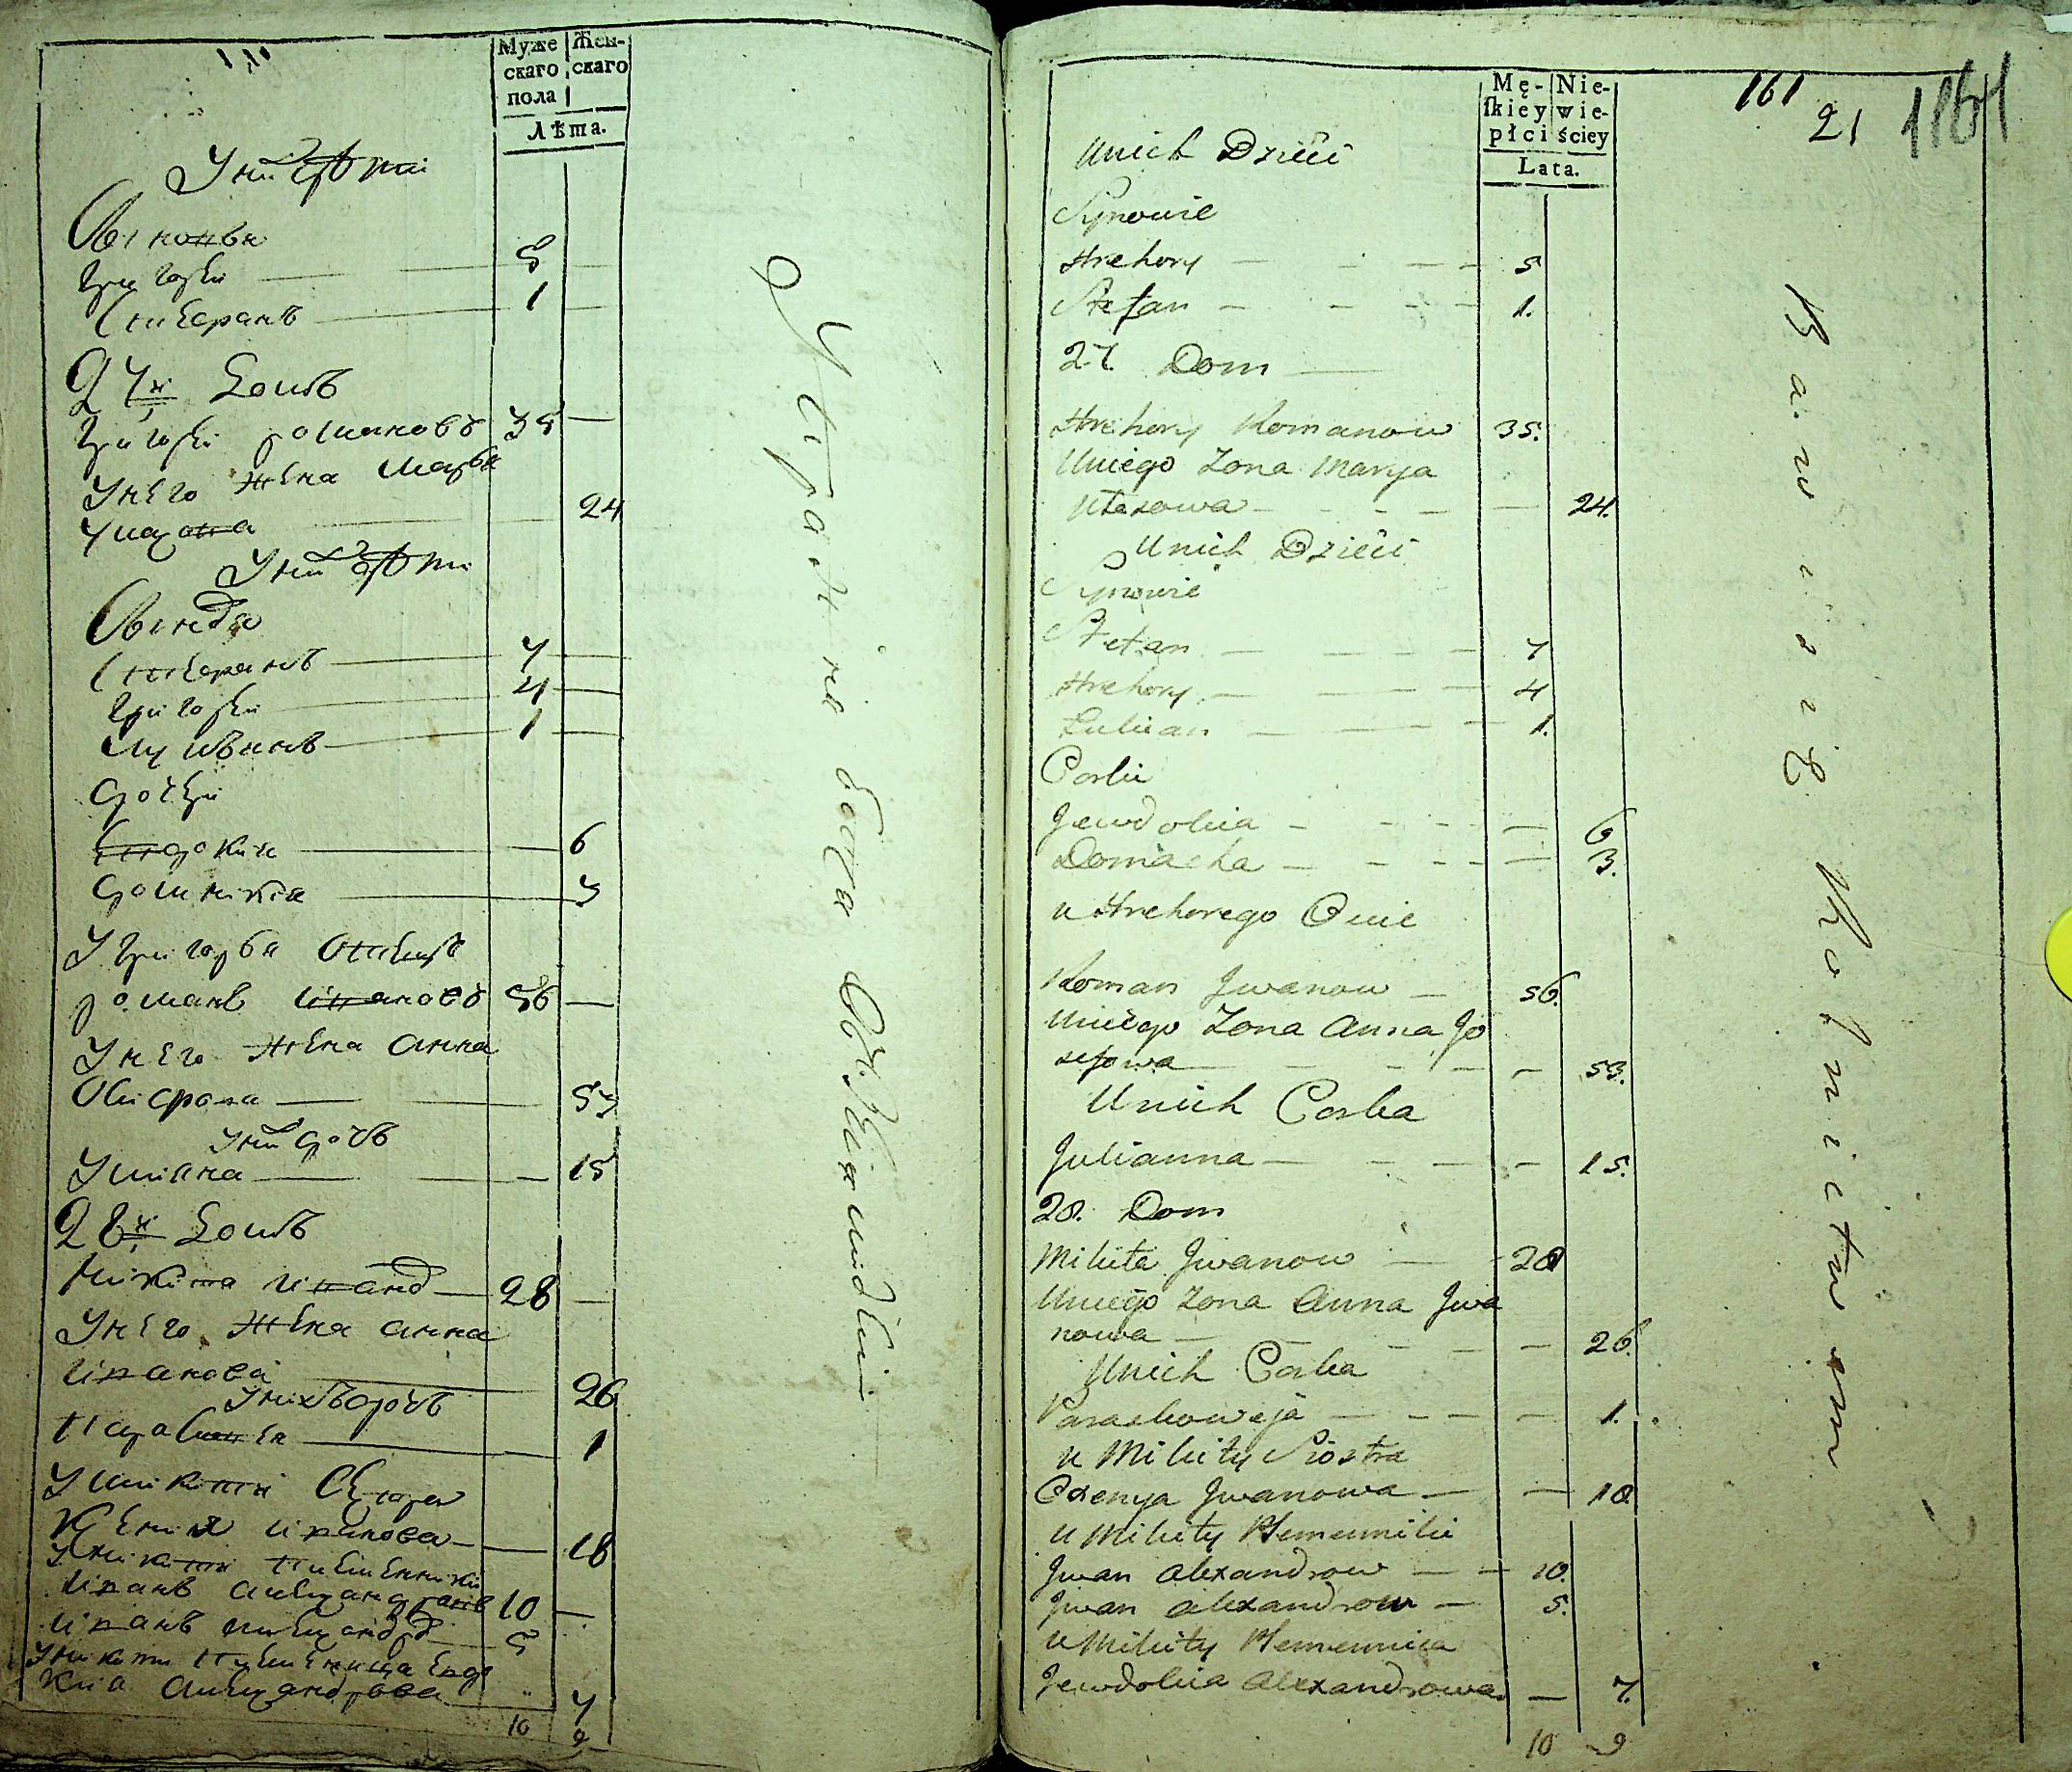 Муже Жен-
скаго скаго
пола
лѣта.
У них дѣти
Сыновья
Григорей 5
Степанъ 1
27й Домъ
Григорей Романовъ 35
У него жена Марья
24
У них дѣти
Сыновья
Степанъ 7
Григорей 4
Лукьянъ 1
Дочери
Евдокия 6
Домникия 3
У Григорья отецъ
Романъ Ивановъ 56
У него жена Анна
Осипова 53
У них дочь
Ульяна 15
28й Домъ
Никита Иванов 28
У него жена Анна
Иванова 26
У них дочь
Парасковея 1
У Никиты сестра
Ксения Иванова 18
У Никиты племянники
Иванъ Александровъ 10
Иванъ Александров 5
У Никиты племянница Евдо
кия Александрова 7
10 9
Mę- Nie-
skiey wie-
płci ściey
Lata.
161
21
Unich Dzieci
Synowie
Hrehory 5
Stefan 1.
27. Dom
Hrehory Romanow 35.
Uniego Zona Marya
24.
Unich Dzieci
Synowie
Stefan 7
Hrehory 4
Łukian 1.
Corki
Jewdokia 6
Domacha 3.
u Hrehorego Ociec
Roman Jwanow 56.
Uniego Zona Anna Jo
sefowa 53.
Unich Corka
Julianna 15.
28. Dom
Mikita Jwanow 28
Uniego Zona Anna Jwa
nowa 26.
Unich Corka
Paraskoweja 1.
u Mikity Siostra
Oxenya Jwanowa 18
u Mikity Plemienniki
Jwan Alexandrow 10.
Jwan Alexandrow 5.
u Mikity Plemiennica
Jewdokia Alexandrowa 7.
10 9